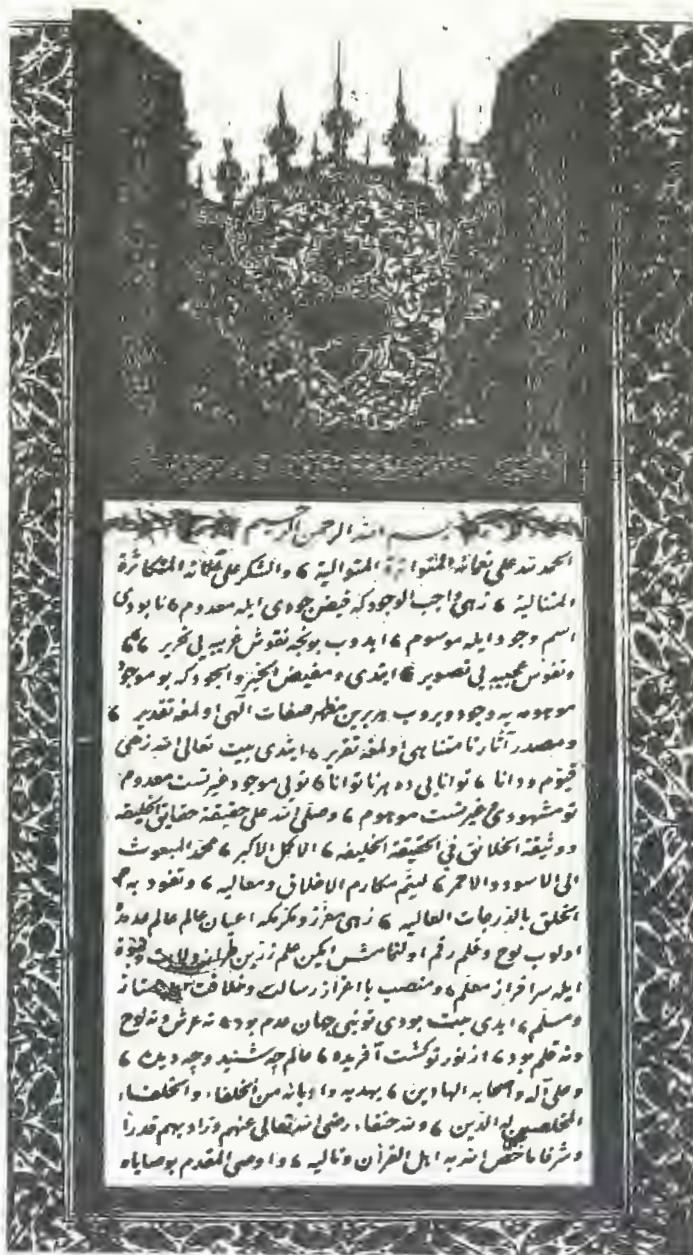 بسم الله الرحمن الرحيم
الحمد لله على نعمائه المتواترة المتوالية ، والشكر على آلائه المتكاثرة
المتتالية ، زهى واجب الوجود كه فيض جودى ايله معدوم ، نابودى
اسم وجود ايله موسوم ، ايدوب بونجه نقوش غريبه يى تحرير ،
ونفوس عجيبه يى تصوير ، ايتدى ومفيض الخير والجود كه بو موجود
موهومه يه وجود ويروب هر برين مظهر صفات الهى اولمغه تقدير ،
ومصدر آثار نامتناهى اولمغه تقرير ، ايتدى بيت تعالى الله زهى
قيوم ودانا ، توانايى ده هر ناتوانا ، تويى موجود غير تست معدوم
تو مشهودى غير تست موهوم ، وصلى الله على حقيقة حقايق الخليقه
ووثيقة الخلائق فى الحقيقة الخليفه ، الاكمل الاكبر ، محمد المبعوث
الى الاسود والاحمر ، ليتمم مكارم الاخلاق ومعاليه ، وتفود به
الخلق بالدرجات العاليه ، زهى معزز ومكرم كه اعيان عالم عالم عدمده
اولوب لوح وقلم رقم اولنمامش ايكن علم زرين
ايله سرافراز معلم ، ومنصب با اعزاز رسالت وخلافت ممتاز
ومسلم ، ايدى بيت بودى تو نبى جهان عدم بود ، نه عرش ونه لوح
ونه قلم بود ، از نور تو كشت آفريده ، عالم چه شنيد وچه ديده ،
وعلى آله واصحابه الهادين ، يهديه واديانه من الخلفاء ، والحلفاء
المخلصين له الدين ، ولله حنفاء رضى الله تعالى عنهم وزاد بهم قدرا
وشرفا ما خص الله به اهل القرآن وتاليه ، واوصى المقدم بوصاياه